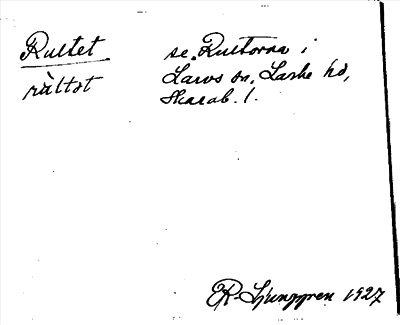 Rultet
se Rultorna i
rùltət
Larvs sn, Laske hd,
Skarab. l.
ER Ljunggren 1927